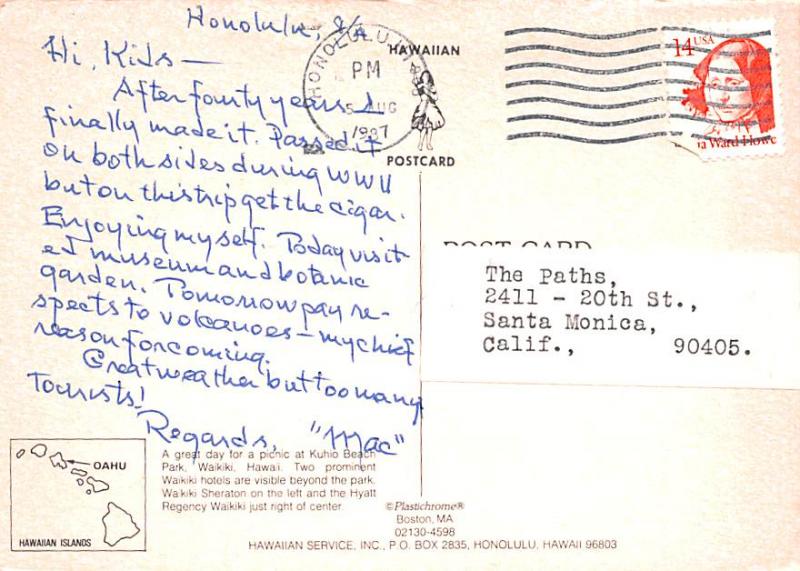 Honolulu, 8/4
Hi, Kids —
After fourty years I
finally made it. Passed it
on both sides during WWII
but on this trip get the cigar.
Enjoying myself. Today visit-
ed museum and botanic
garden. Tomorrow pay re-
spects to volcanoes — my chief
reason for coming.
Great weather but too many
Tourists!
Regards, "Mac"
HONOLULU, HI
PM
5 AUG
1987
HAWAIIAN
POSTCARD
14 USA
a Ward Howe
POST CARD
The Paths,
2411 - 20th St.,
Santa Monica,
Calif., 90405.
OAHU
HAWAIIAN ISLANDS
A great day for a picnic at Kuhio Beach
Park, Waikiki, Hawaii. Two prominent
Waikiki hotels are visible beyond the park.
Waikiki Sheraton on the left and the Hyatt
Regency Waikiki just right of center.
©Plastichrome®
Boston, MA
02130-4598
HAWAIIAN SERVICE, INC., P.O. BOX 2835, HONOLULU, HAWAII 96803